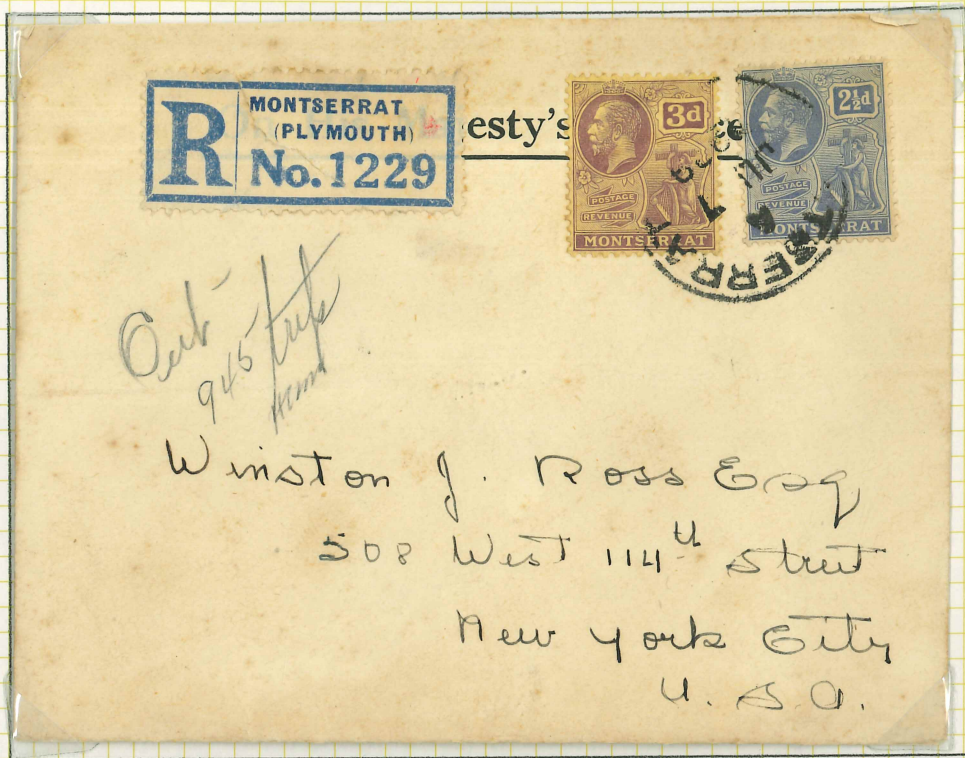 R MONTSERRAT
(PLYMOUTH)
No. 1229
esty's
ce
3d
POSTAGE
REVENUE
MONTSERRAT
2½d
POSTAGE
REVENUE
MONTSERRAT
SERRAT
JU
Out
945
Winston J. Ross Esq
508 West 114th Street
New York City
U. S. A.